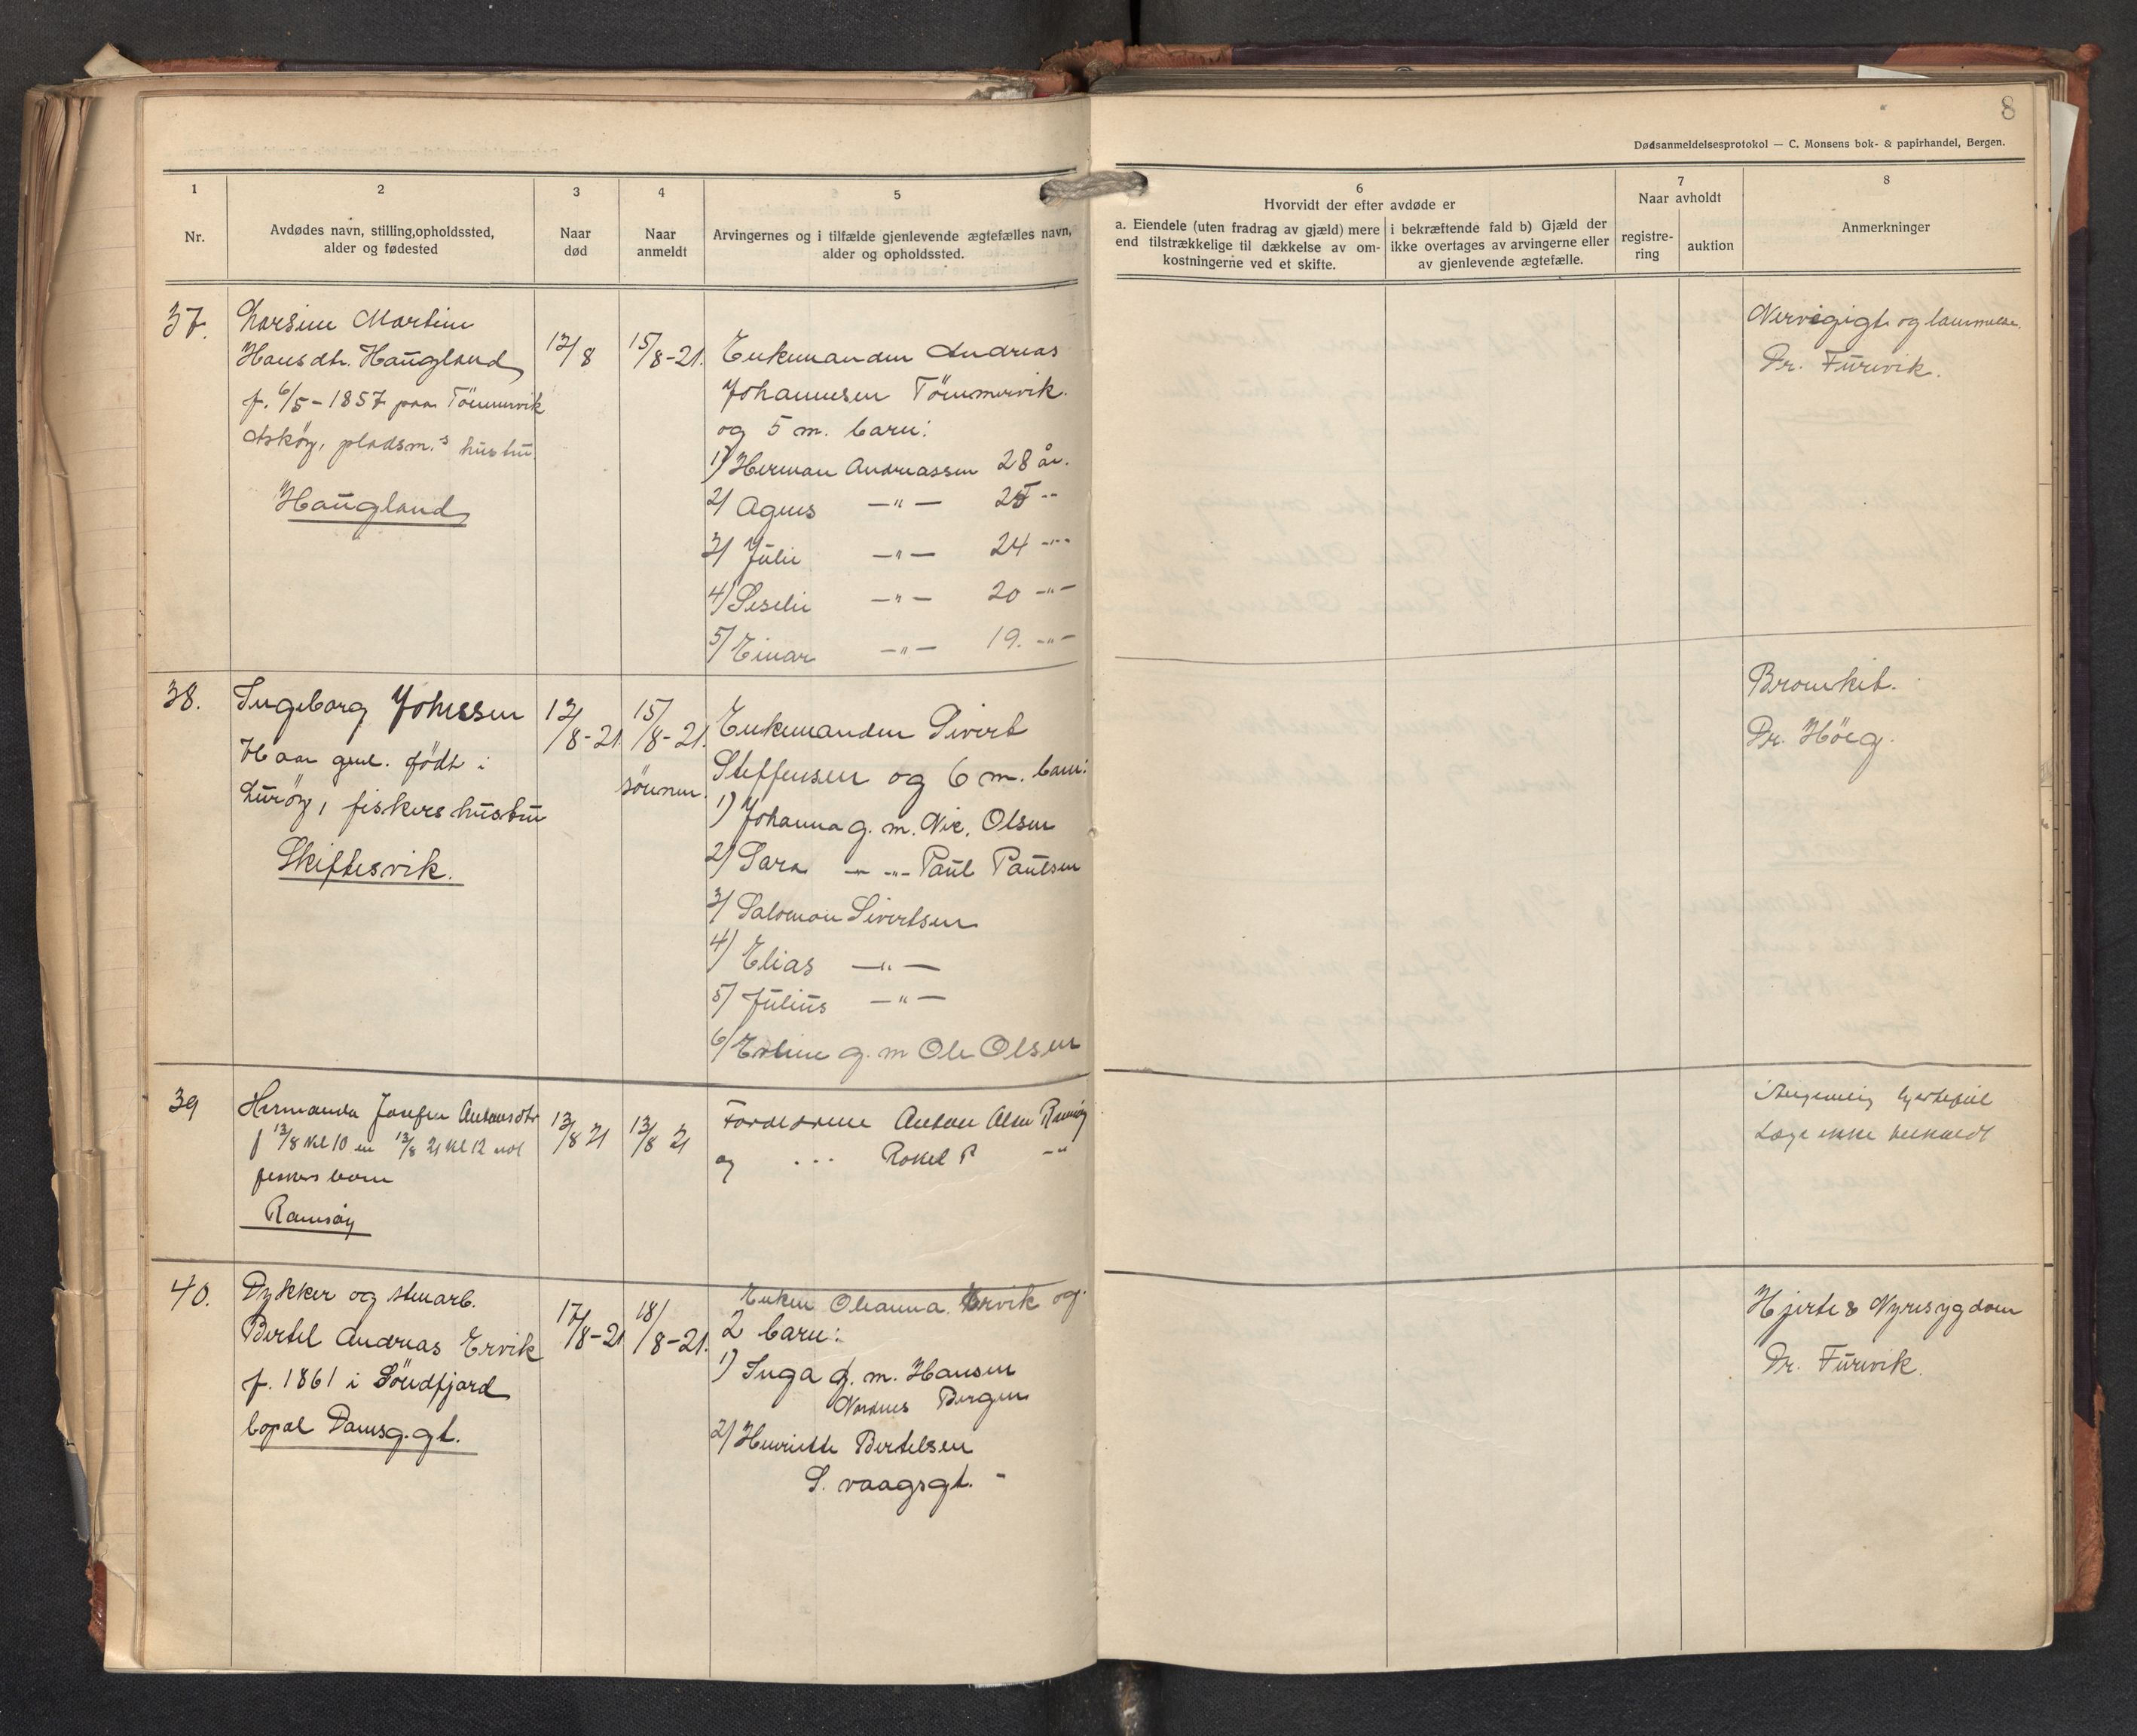 8
Dødsanmeldelsesprotokol — C. Monsens bok- & papirhandel, Bergen.
1
Nr.
2
Avdødes navn, stilling, opholdssted,
alder og fødested
3
Naar
død
4
Naar
anmeldt
5
Arvingernes og i tilfælde gjenlevende ægtefælles navn,
alder og opholdssted.
6
Hvorvidt der efter avdøde er
a. Eiendele (uten fradrag av gjæld) mere
end tilstrækkelige til dækkelse av om-
kostningerne ved et skifte.
i bekræftende fald b) Gjæld der
ikke overtages av arvingerne eller
av gjenlevende ægtefælle.
7
Naar avholdt
registre-
ring
auktion
8
Anmerkninger
37.
Larsine Martine
Hansdtr. Haugland
f. 6/5 - 1857 paa Tömmervik
Askøy, pladsm.s hustru
Haugland
12/8
15/8-21.
Enkemanden Andreas
Johannesen Tömmervik.
og 5 m. barn:
1) Herman Andreassen 28 år.
2) Agnes —"— 25 "
3) Julie —"— 24 —"—
4) Seselie —"— 20 —"—
5) Einar —"— 19. —"—
Nervegigt og lammelse.
Dr. Furevik.
38.
Ingeborg Johnssen
76 aar gml. født i
Lurøy, fiskers hustru
Skiftesvik.
12/8-21
15/8-21.
sönnen.
Enkemanden Sivert
Steffensen og 6 m. barn:
1) Johanna g. m. Nic. Olsen
2) Sara —"— Paul Paulsen
3) Salomon Sivertsen
4) Elias —"—
5) Julius —"—
6) Erline g. m Ole Olsen
Bronkit.
Dr. Höeg.
39
Hermanda Josefen Antonsdtr
f 12/8 kl 10 em 13/8 21 kl 12 nat
fiskers barn
Ramsøy
13/8 21
13/8 21
Forældrene Anton Olsen Ramsøy
og ... Rakel R —"
hjertefeil
Læge ikke tilkaldt
40.
Dykker og stenarb.
Bertel Andreas Ervik
f. 1861 i Söndfjord
bopæl Damsg.gt.
17/8-21
18/8-21.
Enken Oleanna Ervik og
2 barn:
1) Inga g. m. Hansen
Nordnes Bergen
2) Henriette Bertelsen
S. vaagsgt. -
Hjerte & Nyresygdom
Dr. Furevik.